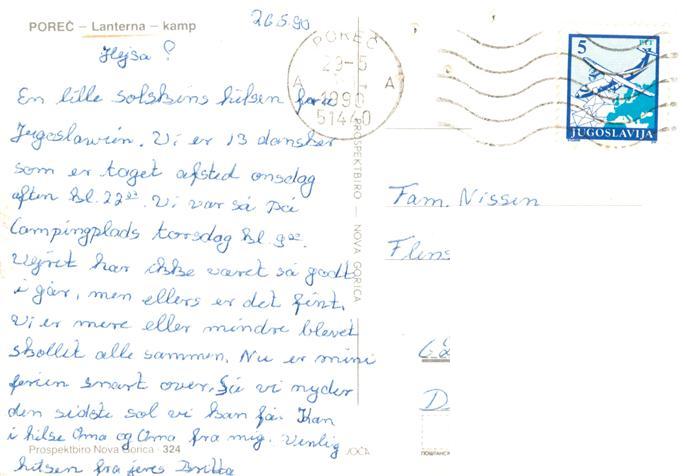 POREČ – Lanterna – kamp
26.5.90
Hejsa!
En lille solskins hilsen fra
Jugoslawien. Vi er 13 dansker
som er taget afsted onsdag
aften kl. 22⁰⁰. Vi var så på
Campingplads torsdag kl. 9⁰⁰.
Vejret har ikke været så godt
i går, men ellers er det fint.
Vi er mere eller mindre blevet
skollet alle sammen. Nu er mini
ferien snart over, så vi nyder
den sidste sol vi kan få. Kan
i hilse Oma og Oma fra mig. Venlig
hilsen fra jeres Britta
Prospektbiro Nova Gorica · 324
JOČA
PROSPEKTBIRO — NOVA GORICA
POREČ
29-5
1990
51440
A A
5
PTT
JUGOSLAVIJA
Fam. Nissen
Flens
D